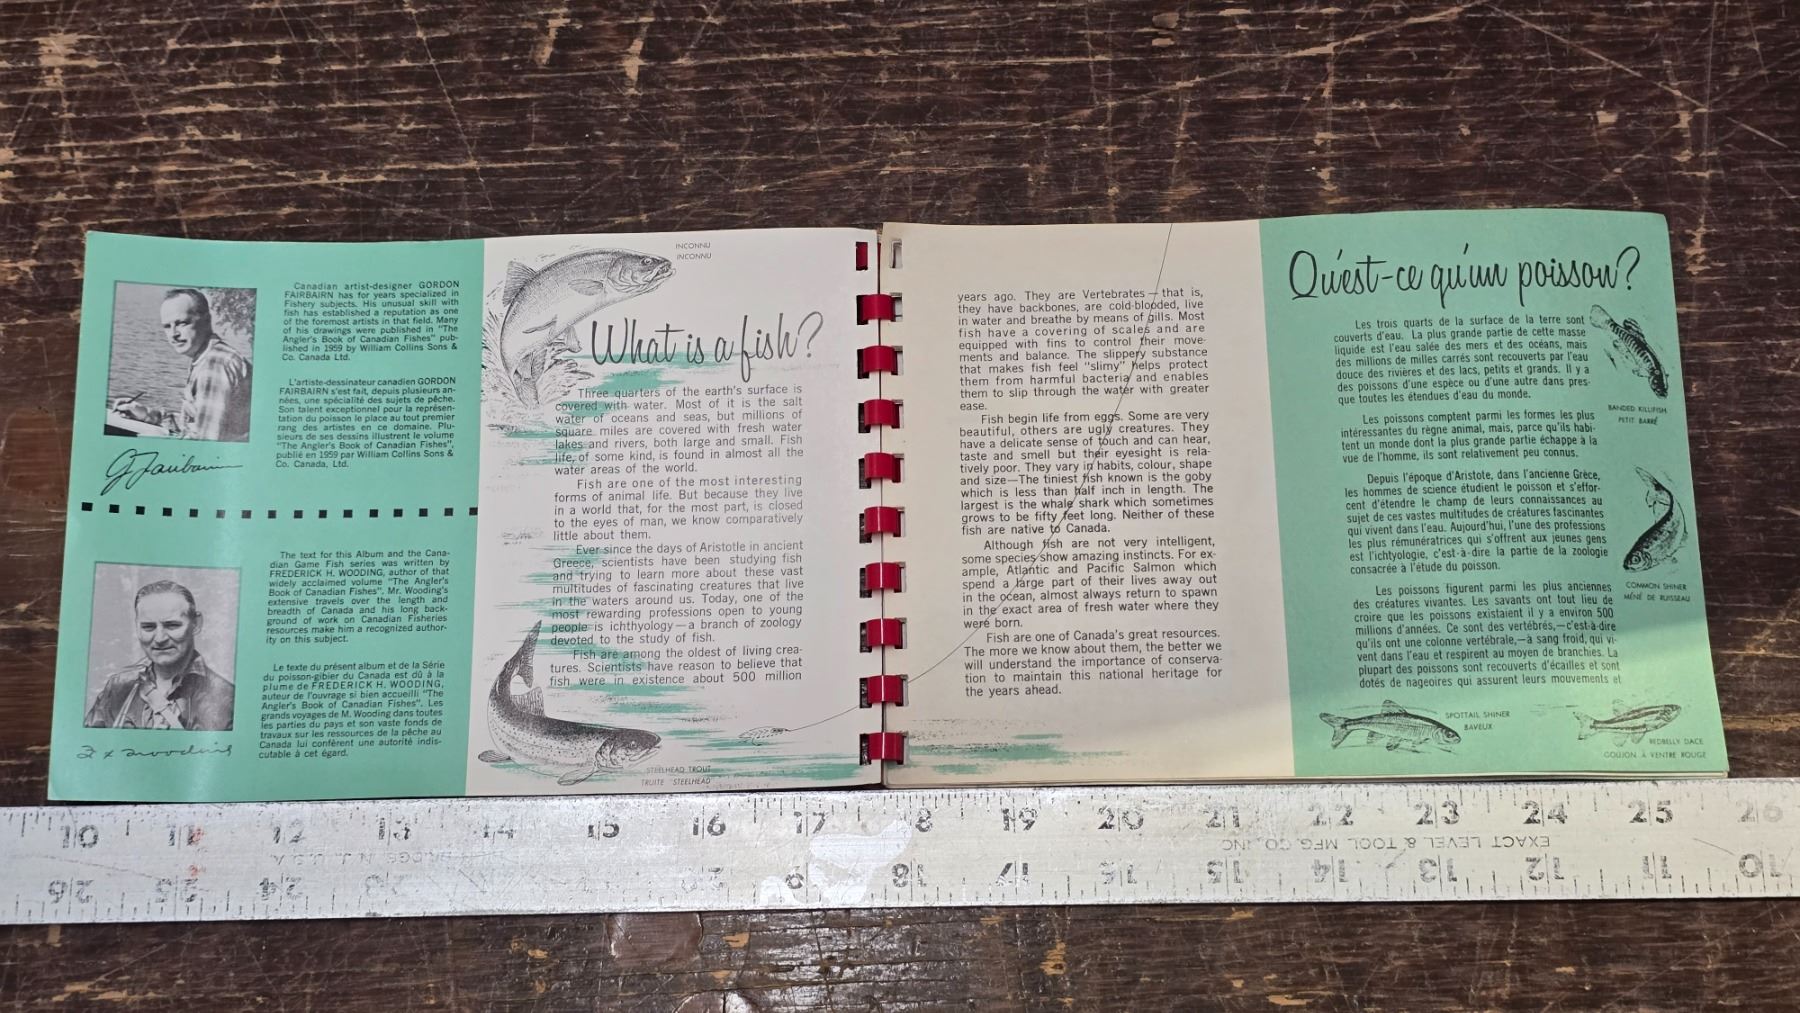 Canadian artist-designer GORDON
FAIRBAIRN has for years specialized in
Fishery subjects. His unusual skill with
fish has established a reputation as one
of the foremost artists in that field. Many
of his drawings were published in "The
Angler's Book of Canadian Fishes" pub-
lished in 1959 by William Collins Sons &
Co. Canada Ltd.
L'artiste-dessinateur canadien GORDON
FAIRBAIRN s'est fait, depuis plusieurs an-
nées, une spécialité des sujets de pêche.
Son talent exceptionnel pour la représen-
tation du poisson le place au tout premier
rang des artistes en ce domaine. Plu-
sieurs de ses dessins illustrent le volume
"The Angler's Book of Canadian Fishes",
publié en 1959 par William Collins Sons &
Co. Canada, Ltd.
G Fairbairn
The text for this Album and the Cana-
dian Game Fish series was written by
FREDERICK H. WOODING, author of that
widely acclaimed volume "The Angler's
Book of Canadian Fishes". Mr. Wooding's
extensive travels over the length and
breadth of Canada and his long back-
ground of work on Canadian Fisheries
resources make him a recognized author-
ity on this subject.
Le texte du présent album et de la Série
du poisson-gibier du Canada est dû à la
plume de FREDERICK H. WOODING,
auteur de l'ouvrage si bien accueilli "The
Angler's Book of Canadian Fishes". Les
grands voyages de M. Wooding dans toutes
les parties du pays et son vaste fonds de
travaux sur les ressources de la pêche au
Canada lui confèrent une autorité indis-
cutable à cet égard.
INCONNU
INCONNU
What is a fish?
Three quarters of the earth's surface is
covered with water. Most of it is the salt
water of oceans and seas, but millions of
square miles are covered with fresh water
lakes and rivers, both large and small. Fish
life, of some kind, is found in almost all the
water areas of the world.
Fish are one of the most interesting
forms of animal life. But because they live
in a world that, for the most part, is closed
to the eyes of man, we know comparatively
little about them.
Ever since the days of Aristotle in ancient
Greece, scientists have been studying fish
and trying to learn more about these vast
multitudes of fascinating creatures that live
in the waters around us. Today, one of the
most rewarding professions open to young
people is ichthyology—a branch of zoology
devoted to the study of fish.
Fish are among the oldest of living crea-
tures. Scientists have reason to believe that
fish were in existence about 500 million
STEELHEAD TROUT
TRUITE "STEELHEAD"
years ago. They are Vertebrates—that is,
they have backbones, are cold-blooded, live
in water and breathe by means of gills. Most
fish have a covering of scales and are
equipped with fins to control their move-
ments and balance. The slippery substance
that makes fish feel "slimy" helps protect
them from harmful bacteria and enables
them to slip through the water with greater
ease.
Fish begin life from eggs. Some are very
beautiful, others are ugly creatures. They
have a delicate sense of touch and can hear,
taste and smell but their eyesight is rela-
tively poor. They vary in habits, colour, shape
and size—The tiniest fish known is the goby
which is less than half inch in length. The
largest is the whale shark which sometimes
grows to be fifty feet long. Neither of these
fish are native to Canada.
Although fish are not very intelligent,
some species show amazing instincts. For ex-
ample, Atlantic and Pacific Salmon which
spend a large part of their lives away out
in the ocean, almost always return to spawn
in the exact area of fresh water where they
were born.
Fish are one of Canada's great resources.
The more we know about them, the better we
will understand the importance of conserva-
tion to maintain this national heritage for
the years ahead.
Qu'est-ce qu'un poisson?
Les trois quarts de la surface de la terre sont
couverts d'eau. La plus grande partie de cette masse
liquide est l'eau salée des mers et des océans, mais
des millions de milles carrés sont recouverts par l'eau
douce des rivières et des lacs, petits et grands. Il y a
des poissons d'une espèce ou d'une autre dans pres-
que toutes les étendues d'eau du monde.
Les poissons comptent parmi les formes les plus
intéressantes du règne animal, mais, parce qu'ils habi-
tent un monde dont la plus grande partie échappe à la
vue de l'homme, ils sont relativement peu connus.
Depuis l'époque d'Aristote, dans l'ancienne Grèce,
les hommes de science étudient le poisson et s'effor-
cent d'étendre le champ de leurs connaissances au
sujet de ces vastes multitudes de créatures fascinantes
qui vivent dans l'eau. Aujourd'hui, l'une des professions
les plus rémunératrices qui s'offrent aux jeunes gens
est l'ichtyologie, c'est-à-dire la partie de la zoologie
consacrée à l'étude du poisson.
Les poissons figurent parmi les plus anciennes
des créatures vivantes. Les savants ont tout lieu de
croire que les poissons existaient il y a environ 500
millions d'années. Ce sont des vertébrés,—c'est-à-dire
qu'ils ont une colonne vertébrale,—à sang froid, qui vi-
vent dans l'eau et respirent au moyen de branchies. La
plupart des poissons sont recouverts d'écailles et sont
dotés de nageoires qui assurent leurs mouvements et
BANDED KILLIFISH
PETIT BARRÉ
COMMON SHINER
MÉNÉ DE RUISSEAU
SPOTTAIL SHINER
BAVEUX
REDBELLY DACE
GOUJON À VENTRE ROUGE
10 11 12 13 14 15 16 17 18 19 20 21 22 23 24 25 26
EXACT LEVEL & TOOL MFG. CO., INC.
26 25 24 18 17 16 15 14 13 12 11 10